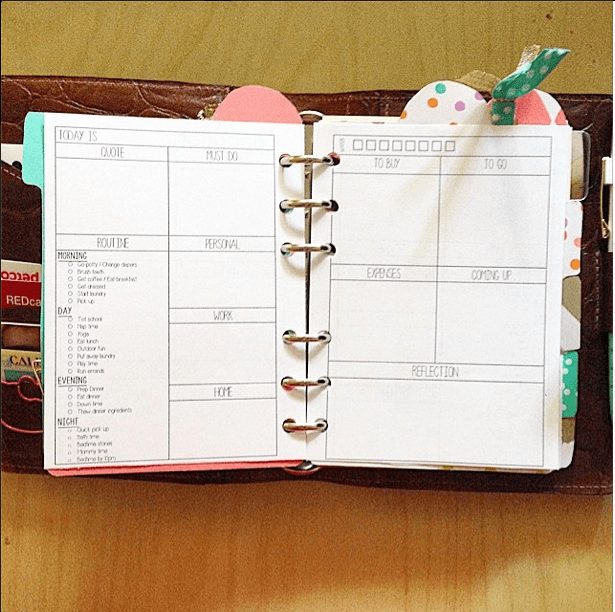 TODAY IS
QUOTE
MUST DO
ROUTINE
MORNING
Go potty / Change diapers
Brush teeth
Get coffee / Eat breakfast
Get dressed
Start laundry
Pick up
DAY
Tot school
Nap time
Yoga
Eat lunch
Outdoor fun
Put away laundry
Play time
Run errands
EVENING
Prep Dinner
Eat dinner
Down time
Thaw dinner ingredients
NIGHT
Quick pick up
Bath time
Bedtime stories
Mommy time
Bedtime by 10pm
PERSONAL
WORK
HOME
TO BUY
TO GO
EXPENSES
COMING UP
REFLECTION
REDca